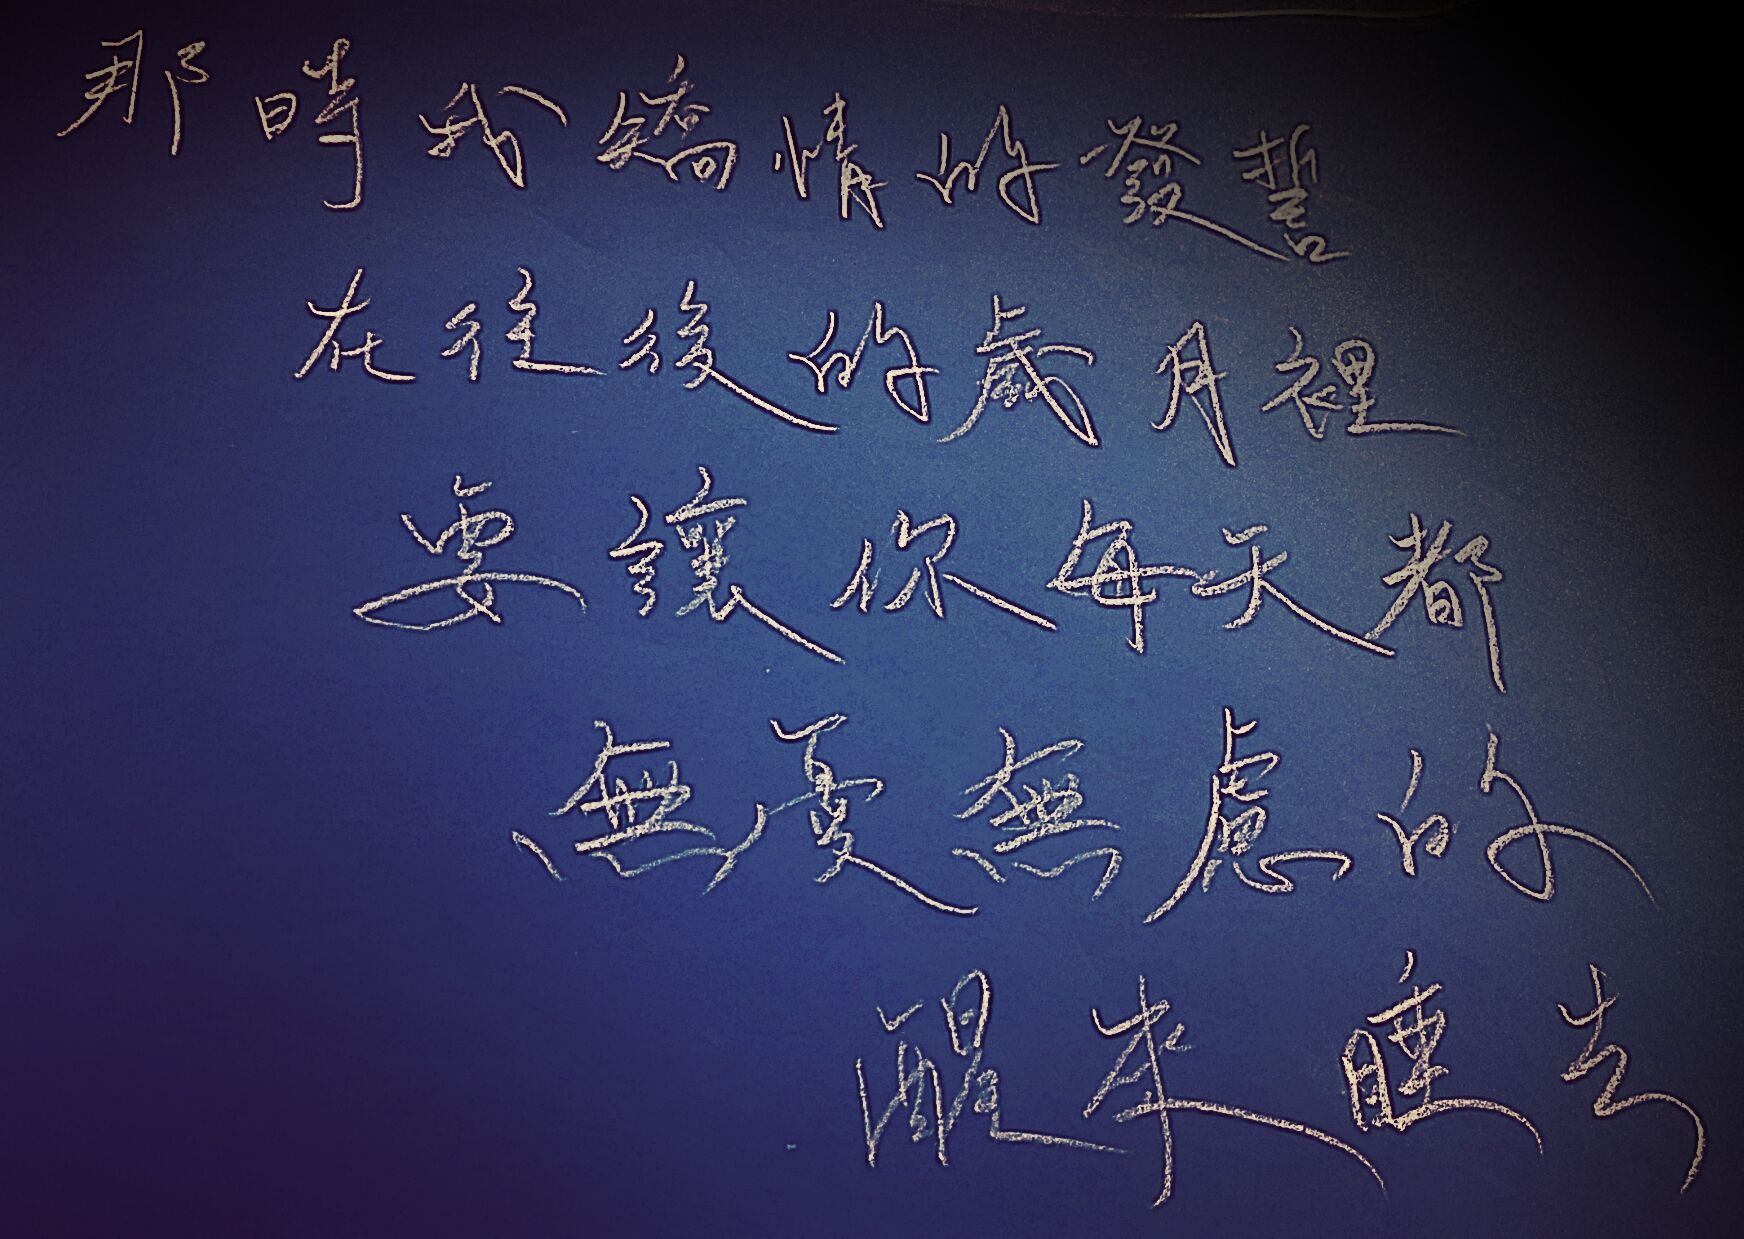 那時我矯情的發誓
在往後的歲月裡
要讓你每天都
無憂無慮的
醒來睡去